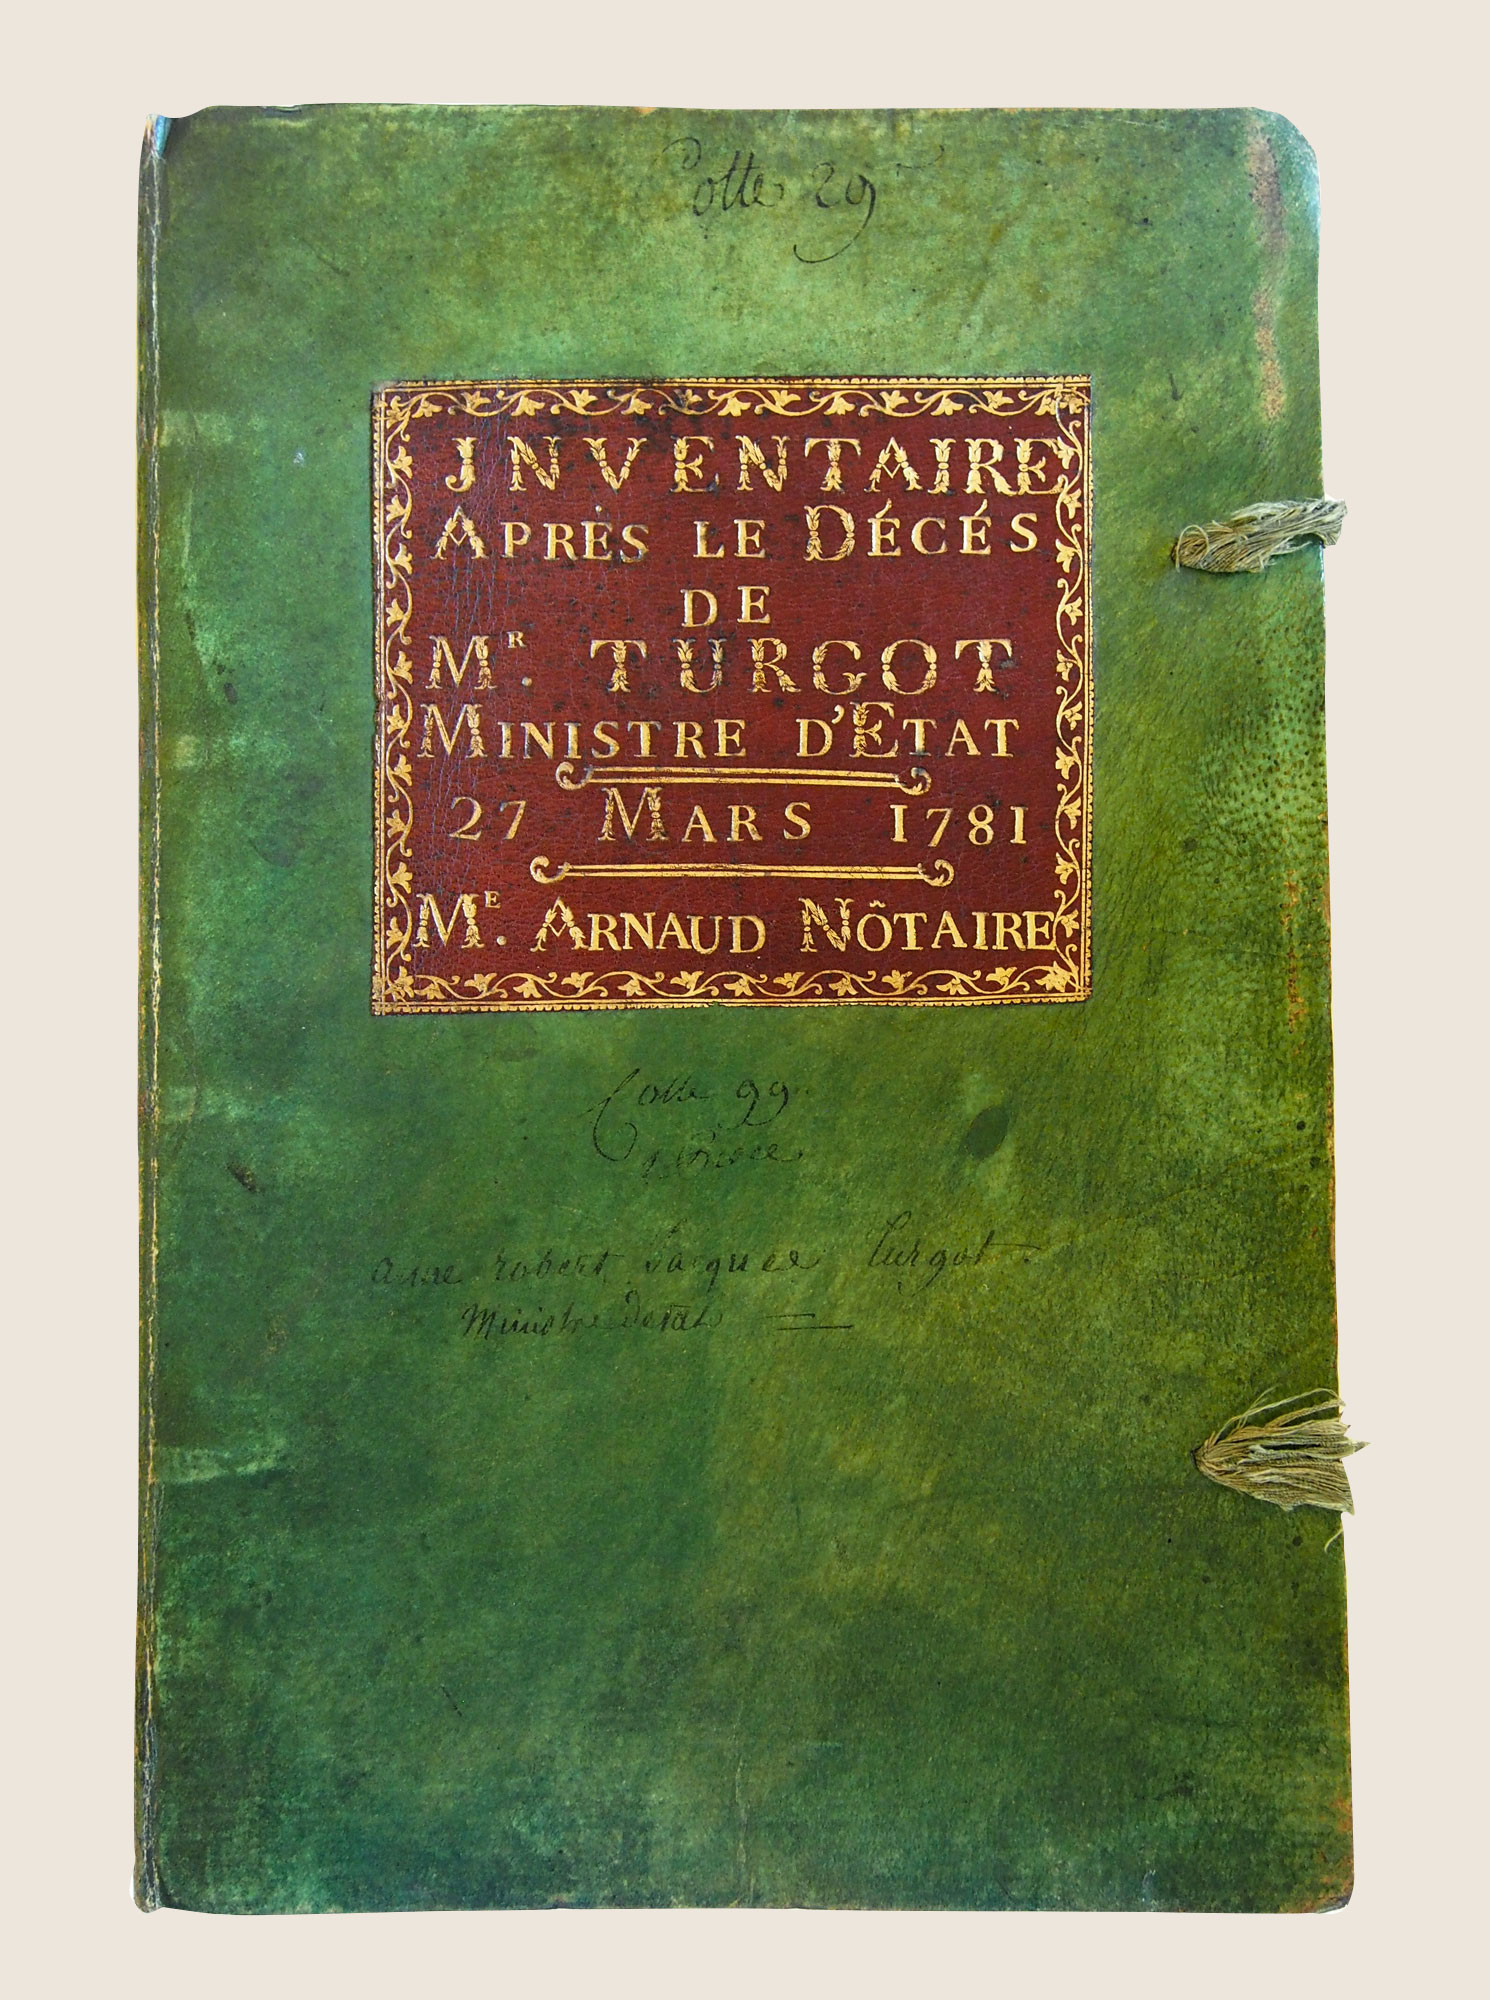 Cotte 29
JNVENTAIRE
APRÈS LE DÉCÉS
DE
MR. TURGOT
MINISTRE D'ETAT
27 MARS 1781
ME. ARNAUD NÔTAIRE
Cotte 99.
anne robert Jacques Turgot
Ministre Detat